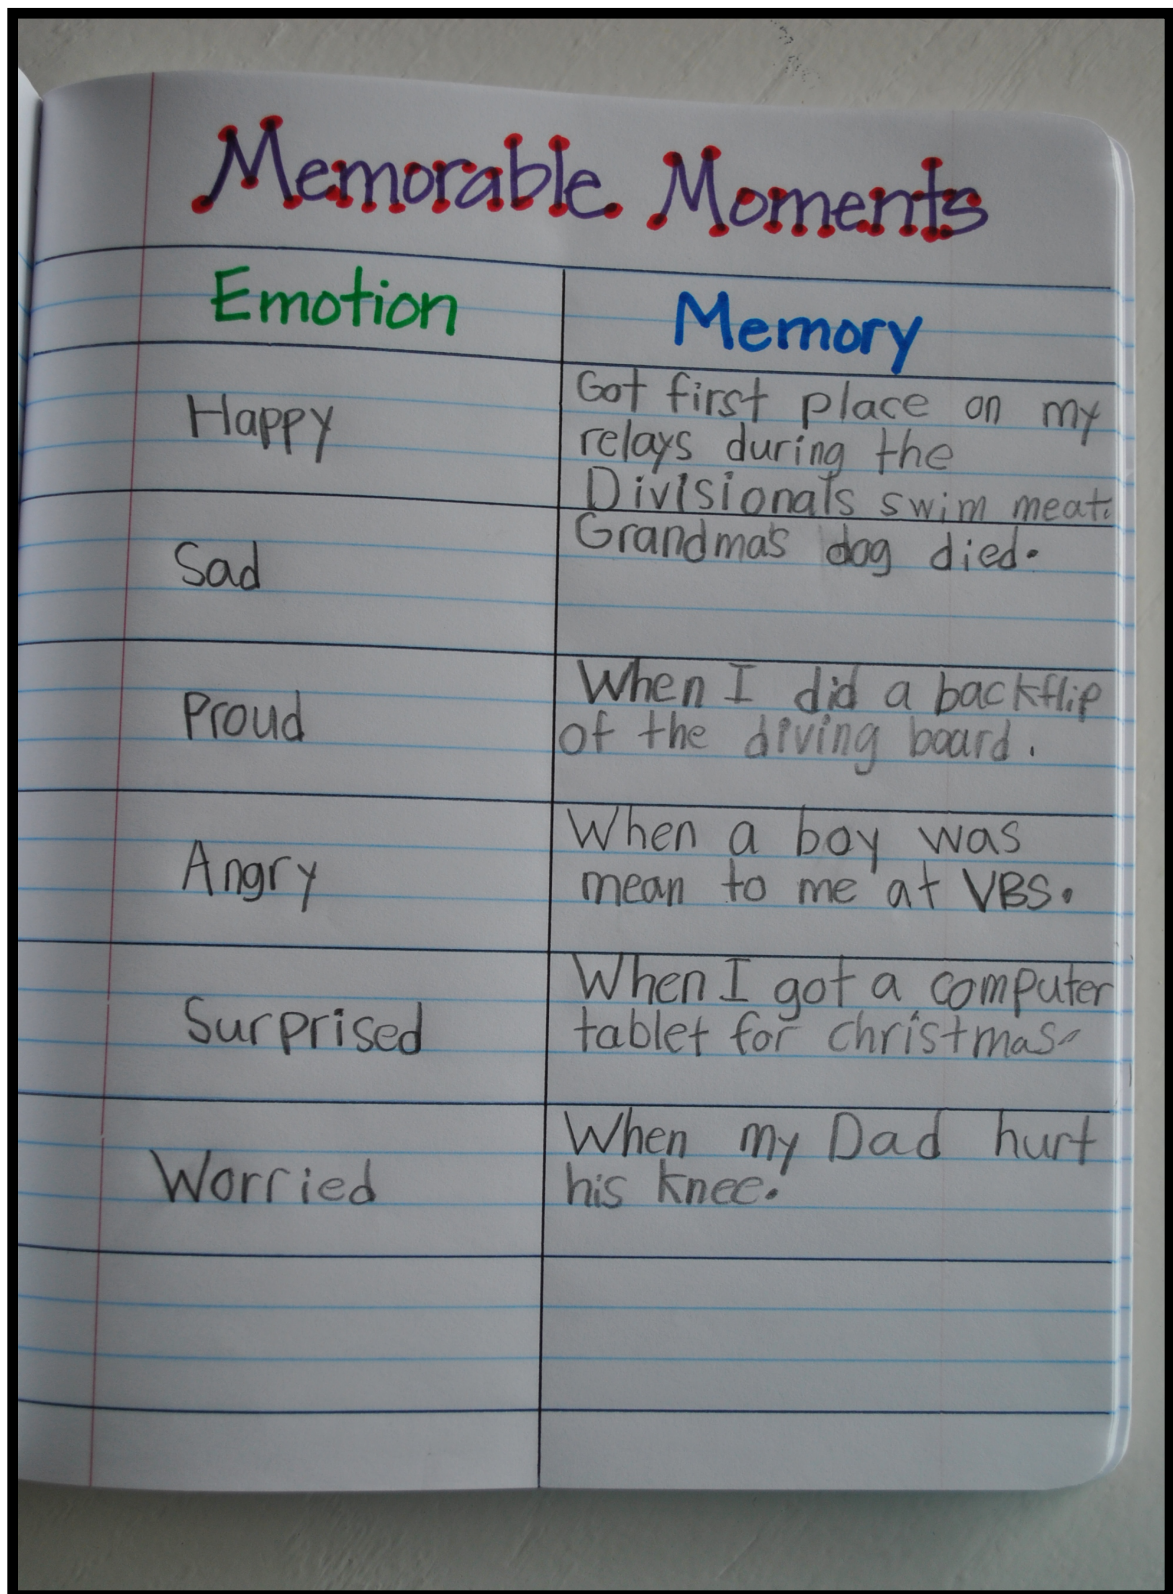 Memorable Moments
Emotion
Memory
Happy
Got first place on my
relays during the
Divisionals swim meat.
Sad
Grandma's dog died.
Proud
When I did a backflip
of the diving board.
Angry
When a boy was
mean to me at VBS.
Surprised
When I got a computer
tablet for christmas.
Worried
When my Dad hurt
his knee.